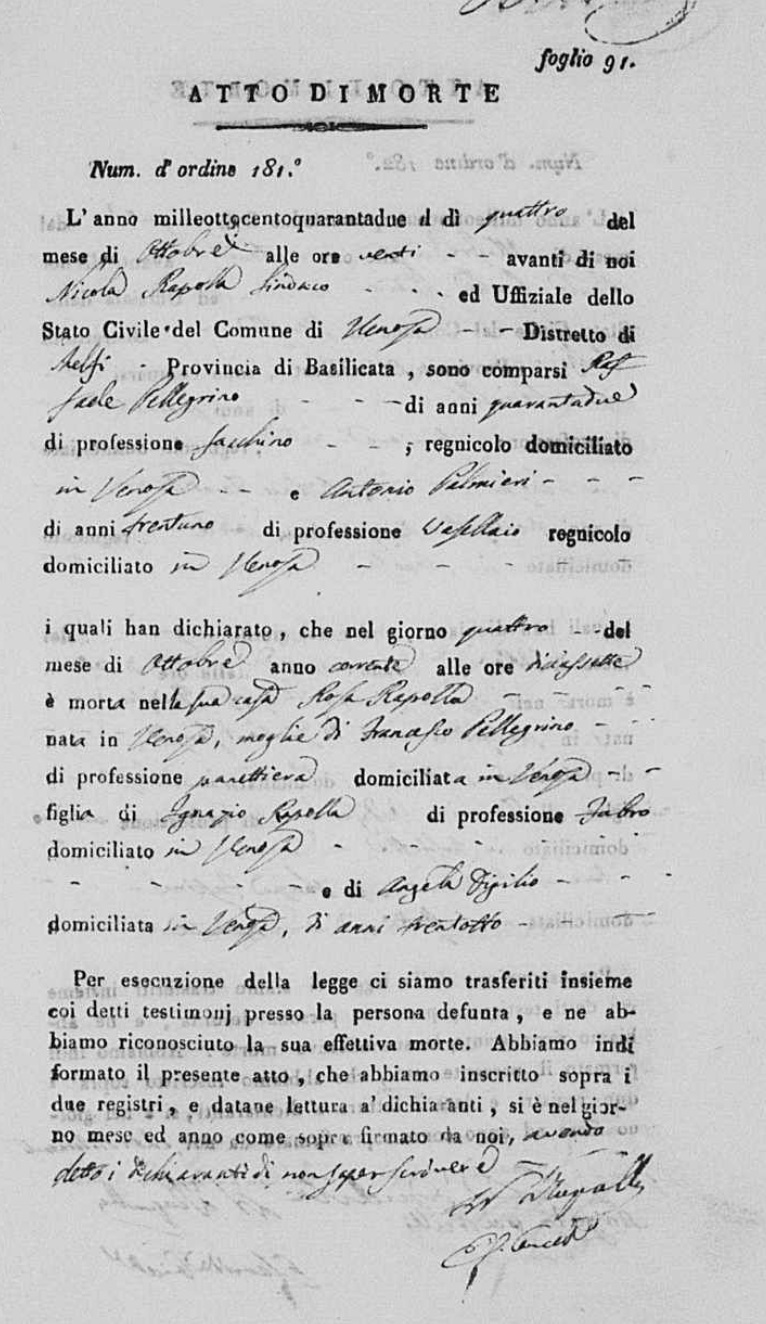 foglio 91.
ATTO DI MORTE
Num. d'ordine 181.°
L'anno milleottocentoquarantadue il dì quattro del
mese di Ottobre alle ore venti - - avanti di noi
Nicola Rapolla Sindaco - - - ed Uffiziale dello
Stato Civile del Comune di Venosa - - Distretto di
Melfi - Provincia di Basilicata, sono comparsi Raf
faele Pellegrino - - - di anni quarantadue
di professione facchino - - -, regnicolo domiciliato
in Venosa - - e Antonio Palmieri - - -
di anni trentuno di professione Vasellaio regnicolo
domiciliato in Venosa - - - - -
i quali han dichiarato, che nel giorno quattro - - del
mese di Ottobre anno corrente alle ore diciassette
è morta nella sua casa Rosa Rapolla - - - -
nata in Venosa, moglie di Francesco Pellegrino - - -
di professione panettiera domiciliata in Venosa - -
figlia di Ignazio Rapolla di professione Fabro
domiciliato in Venosa - - - - - -
- - - - e di Angela Digilio - - -
domiciliata in Venosa, di anni trentotto - - - -
Per esecuzione della legge ci siamo trasferiti insieme
coi detti testimonj presso la persona defunta, e ne ab-
biamo riconosciuto la sua effettiva morte. Abbiamo indi
formato il presente atto, che abbiamo inscritto sopra i
due registri, e datane lettura a' dichiaranti, si è nel gior-
no mese ed anno come sopra firmato da noi, avendo
detto i dichiaranti di non saper scrivere - -
N Rapolla